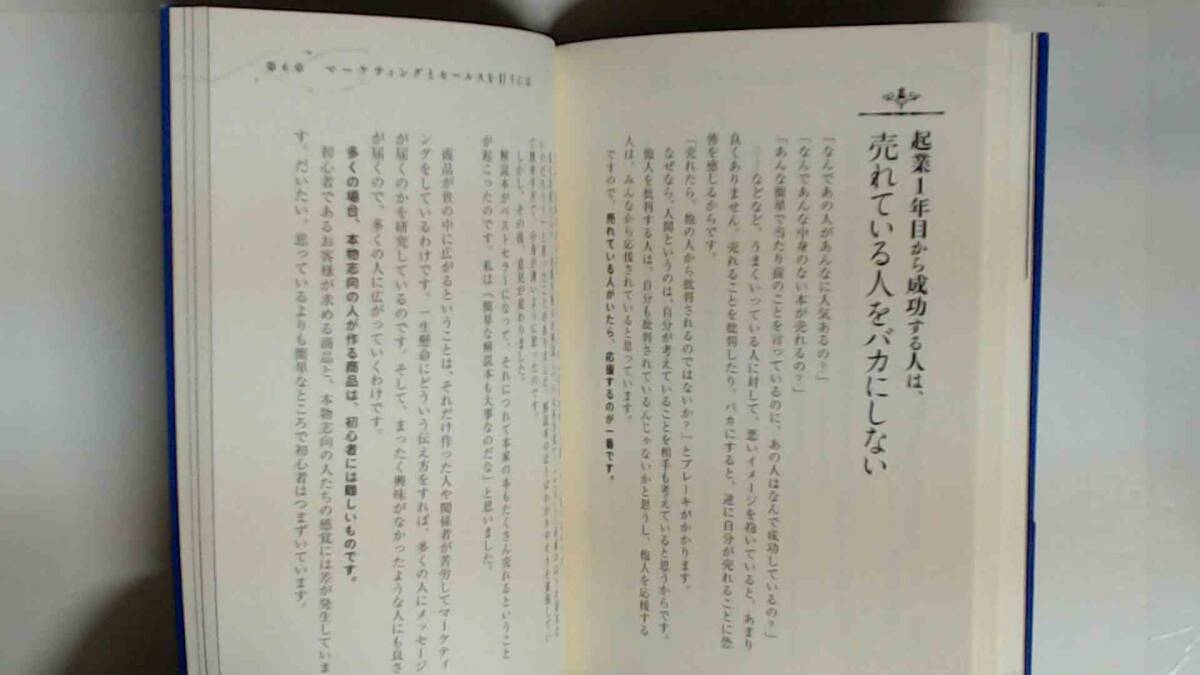 起業1年目から成功する人は、
売れている人をバカにしない
「なんであの人があんなに人気あるの?」
「なんであんな中身のない本が売れるの?」
「あんな簡単で当たり前のことを言っているのに、あの人はなんで成功しているの?」
……などなど、うまくいっている人に対して、悪いイメージを抱いていると、あまり
良くありません。売れることを批判したり、バカにすると、逆に自分が売れることに恐
怖を感じるからです。
「売れたら、他の人から批判されるのではないか?」とブレーキがかかります。
なぜなら、人間というのは、自分が考えていることを相手も考えていると思うからです。
他人を批判する人は、自分も批判されているんじゃないかと思うし、他人を応援する
人は、みんなから応援されていると思っています。
ですので、売れている人がいたら、応援するのが一番です。
第6章 マーケティングとセールスを行うには
しかし、その後、意見が変わりました。
解説本がベストセラーになって、それにつれて本家の本もたくさん売れるということ
が起こったのです。私は「簡単な解説本も大事なのだな」と思いました。
商品が世の中に広がるということは、それだけ作った人や関係者が苦労してマーケティ
ングをしているわけです。一生懸命にどういう伝え方をすれば、多くの人にメッセージ
が届くのかを研究しているのです。そして、まったく興味がなかったような人にも良さ
が届くので、多くの人に広がっていくわけです。
多くの場合、本物志向の人が作る商品は、初心者には難しいものです。
初心者であるお客様が求める商品と、本物志向の人たちの感覚には差が発生していま
す。だいたい、思っているよりも簡単なところで初心者はつまずいています。